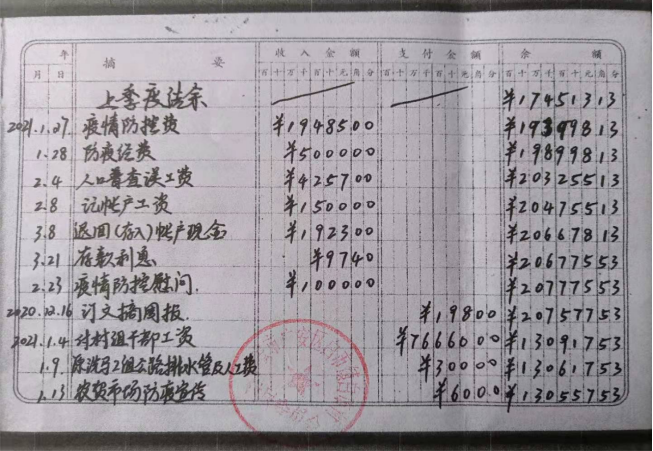 年 摘 要 收入金额 支付金额 余额
月 日 百十万千百十元角分 百十万千百十元角分 百十万千百十元角分
上季度结余 ¥17451313
2021.1.27 疫情防控费 ¥1948500 ¥19399813
1.28 防疫经费 ¥500000 ¥19899813
2.4 人口普查误工费 ¥425700 ¥20325513
2.8 记帐户工资 ¥150000 ¥20475513
3.8 退回(存入)帐户现金 ¥192300 ¥20667813
3.21 存款利息 ¥9740 ¥20677553
2.23 疫情防控慰问. ¥100000 ¥20777553
2020.12.16 订文摘周报. ¥19800 ¥20757753
2021.1.4 付村组干部工资 ¥7666000 ¥13091753
1.9 原洗马2组公路排水管及人工费 ¥30000 ¥13061753
1.13 农贸市场防疫宣传 ¥6000 ¥13055753